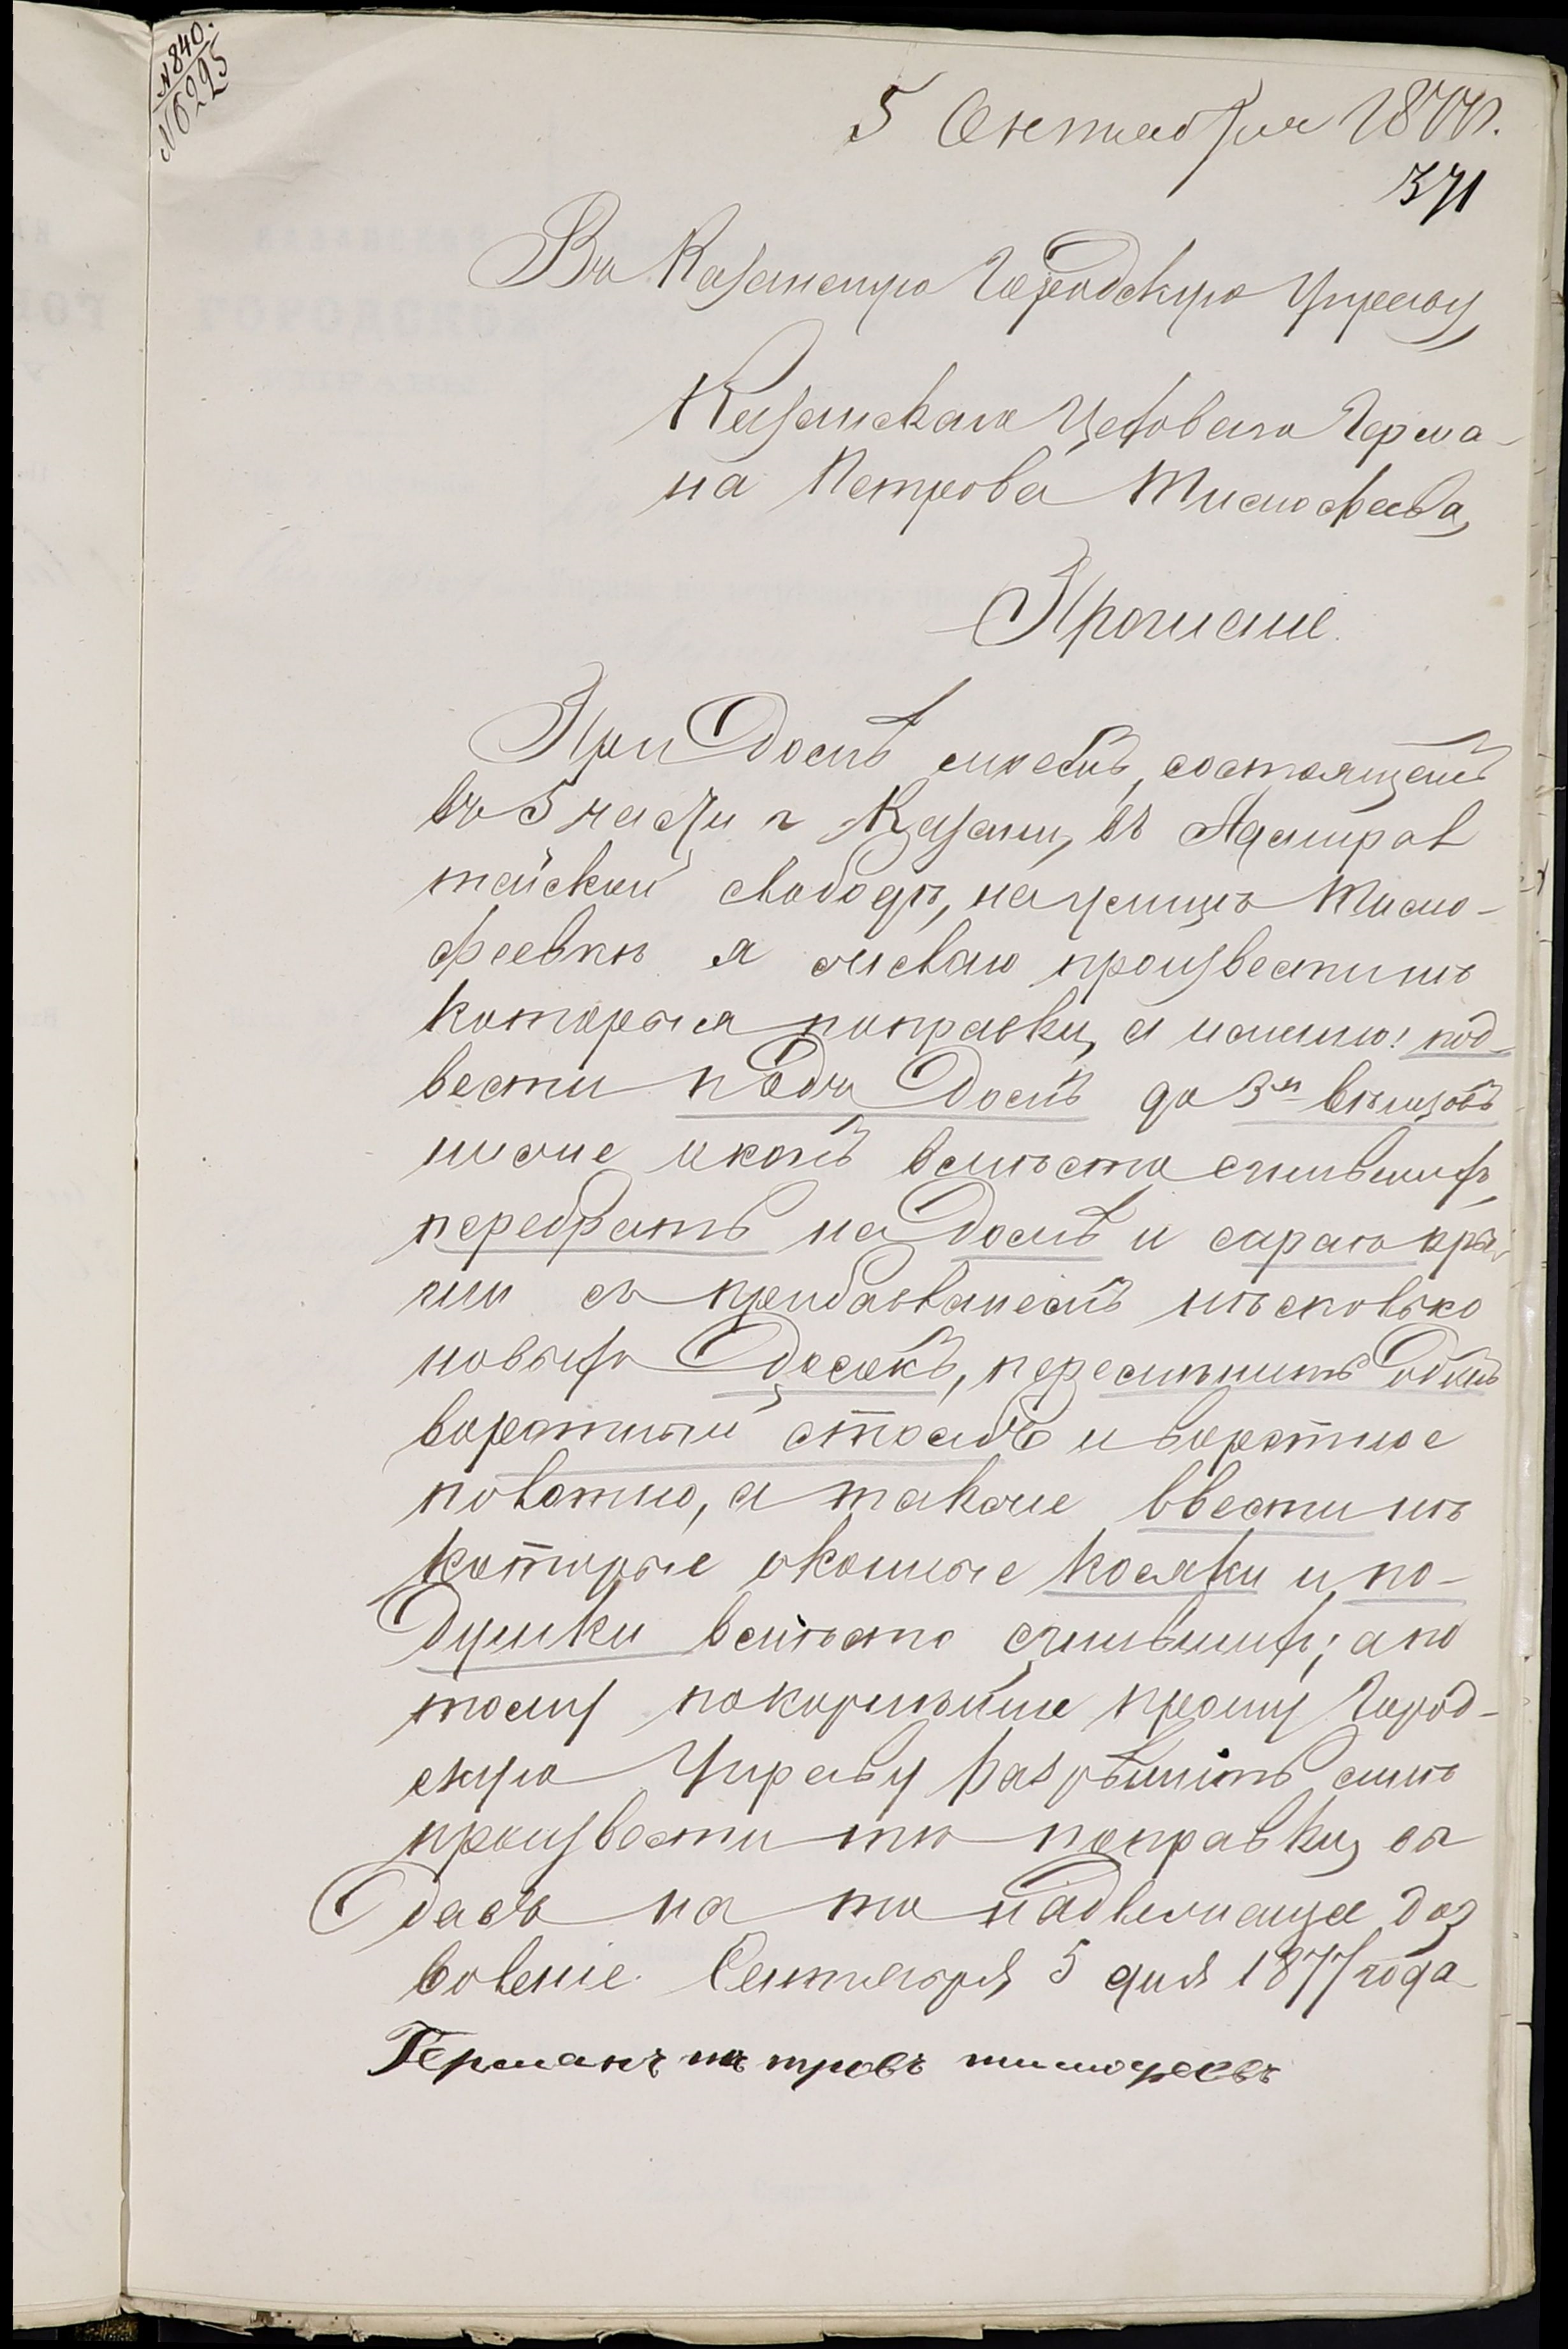 № 840.
№ 6225
5 Октября 1877.
371
Въ Казанскую Городскую Управу,
Казанскаго Цеховаго Герма-
на Петрова Тимофеева,
Прошеніе.
При Доме моемъ, состоящемъ
въ 5 части г. Казани, въ Адмирал
тейской слободѣ, на улицѣ Тимо-
феевкѣ я желаю произвести нѣ
которыя поправки, а именно: под-
вести подъ Домъ до 3хъ венцовъ
ниже оконъ вместо сгнившихъ,
перебрать на Домѣ и сараѣ кры
ши съ прибавленіемъ нѣсколько
новыхъ Досокъ, переменить одинъ
воротный столбъ и воротное
полотно, а также ввести нѣ
которые оконные косяки и по-
душки вмѣсто сгнившихъ; а по
тому покорнѣйше прошу Город-
скую Управу разрѣшить мнѣ
произвести тѣ поправки, вы
давъ на то надлежащее доз
воленіе. Сентября 5 дня 1877 года
Германъ петровъ тимофеевъ